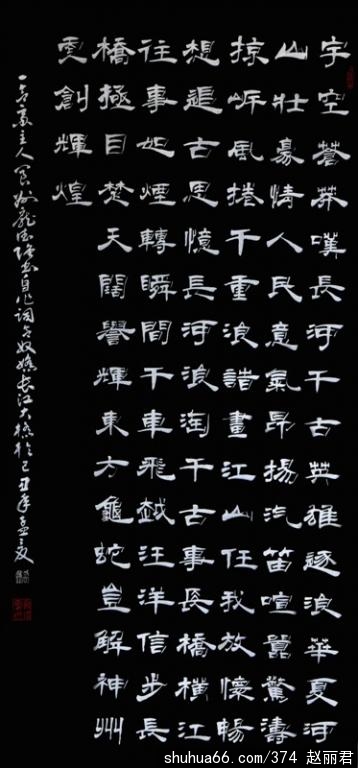 宇空蒼莽嘆長河千古英雄逐浪華夏河
山壯豪情人民意氣昂揚汽笛喧囂驚濤
掠岍風捲千重浪諧畫江山任我放懷暢
想追古思憶長河浪淘千古事長橋橫江
往事如煙轉瞬間千車飛越汪洋信步長
橋極目楚天闊譽輝東方龜蛇豈解神州
更創輝煌
主人書自作詞念奴嬌長江大橋於己丑年孟夏
shuhua66.com/374 赵丽君